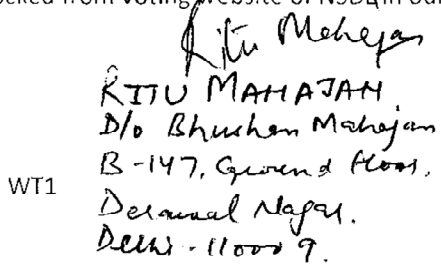 ocked from voting website of NSDL in our
Ritu Mahajan
RITU MAHAJAN
D/o Bhushan Mahajan
B-147, Ground Floor,
WT1
Derawal Nagar.
Delhi - 110009.